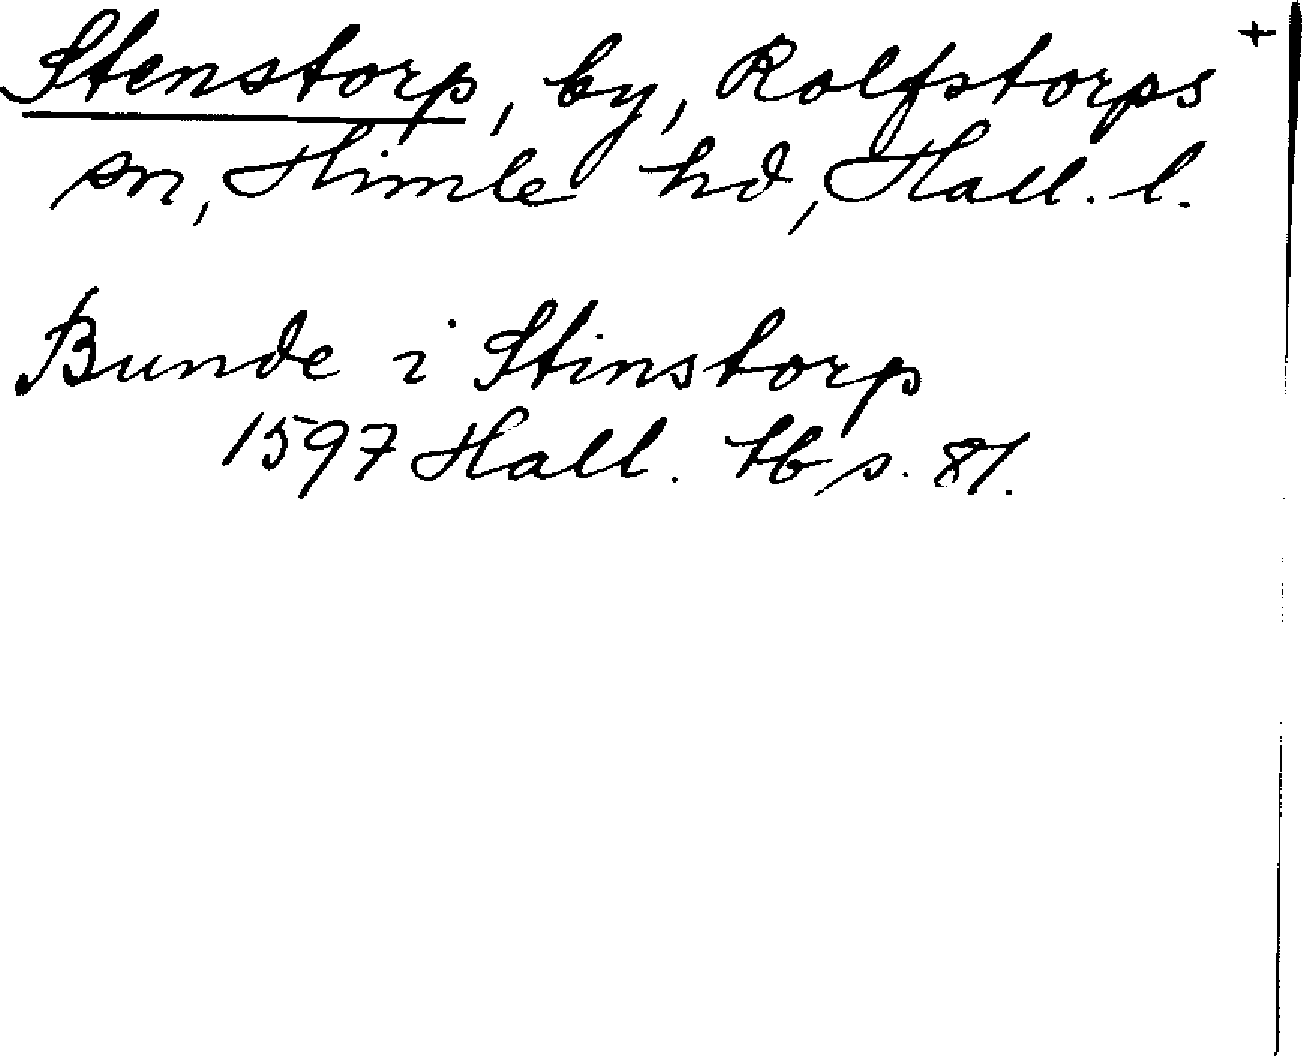 Stenstorp, by, Rolfstorps +
sn, Himle hd, Hall. l.
Bunde i Stinstorp
1597 Hall. tb s. 81.